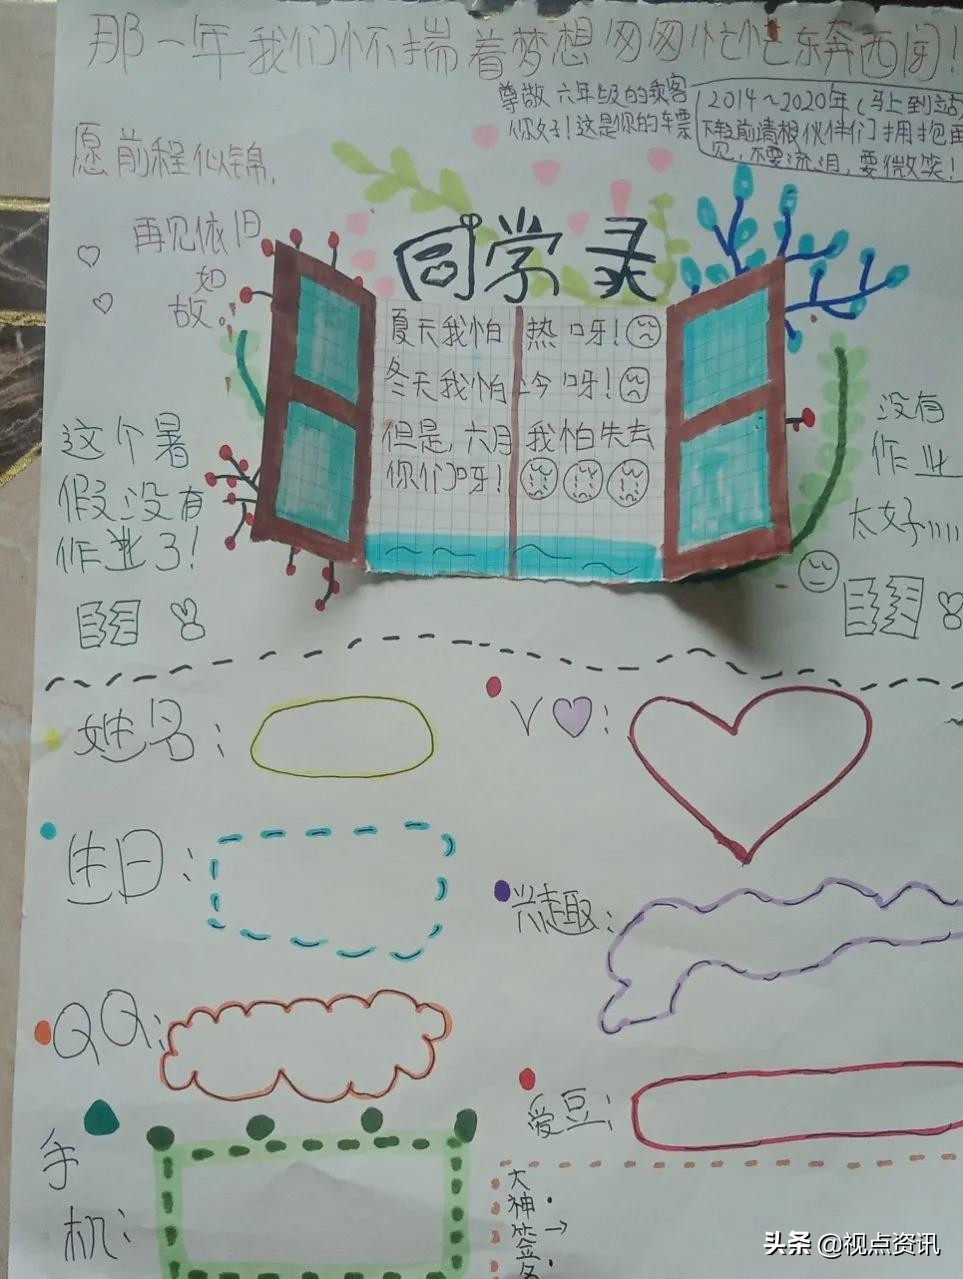 那一年我们怀揣着梦想匆匆忙忙东奔西闯！
尊敬六年级的乘客
你好！这是你的车票
2014～2020年（马上到站
下车前请根伙伴们拥抱再
见，不要流泪，要微笑！
愿前程似锦，
再见依旧
如
故。
同学录
夏天我怕热呀！
冬天我怕冷呀！
但是，六月我怕失去
你们呀！
这个暑
假没有
作业了！
没有
作业
太好
姓名：
V：
生日：
兴趣：
QQ：
爱豆：
手
机：
大
神
签
名
头条 @视点资讯